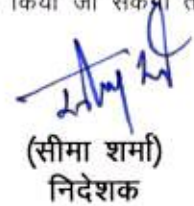 किया जा सकता
(सीमा शर्मा)
निदेशक